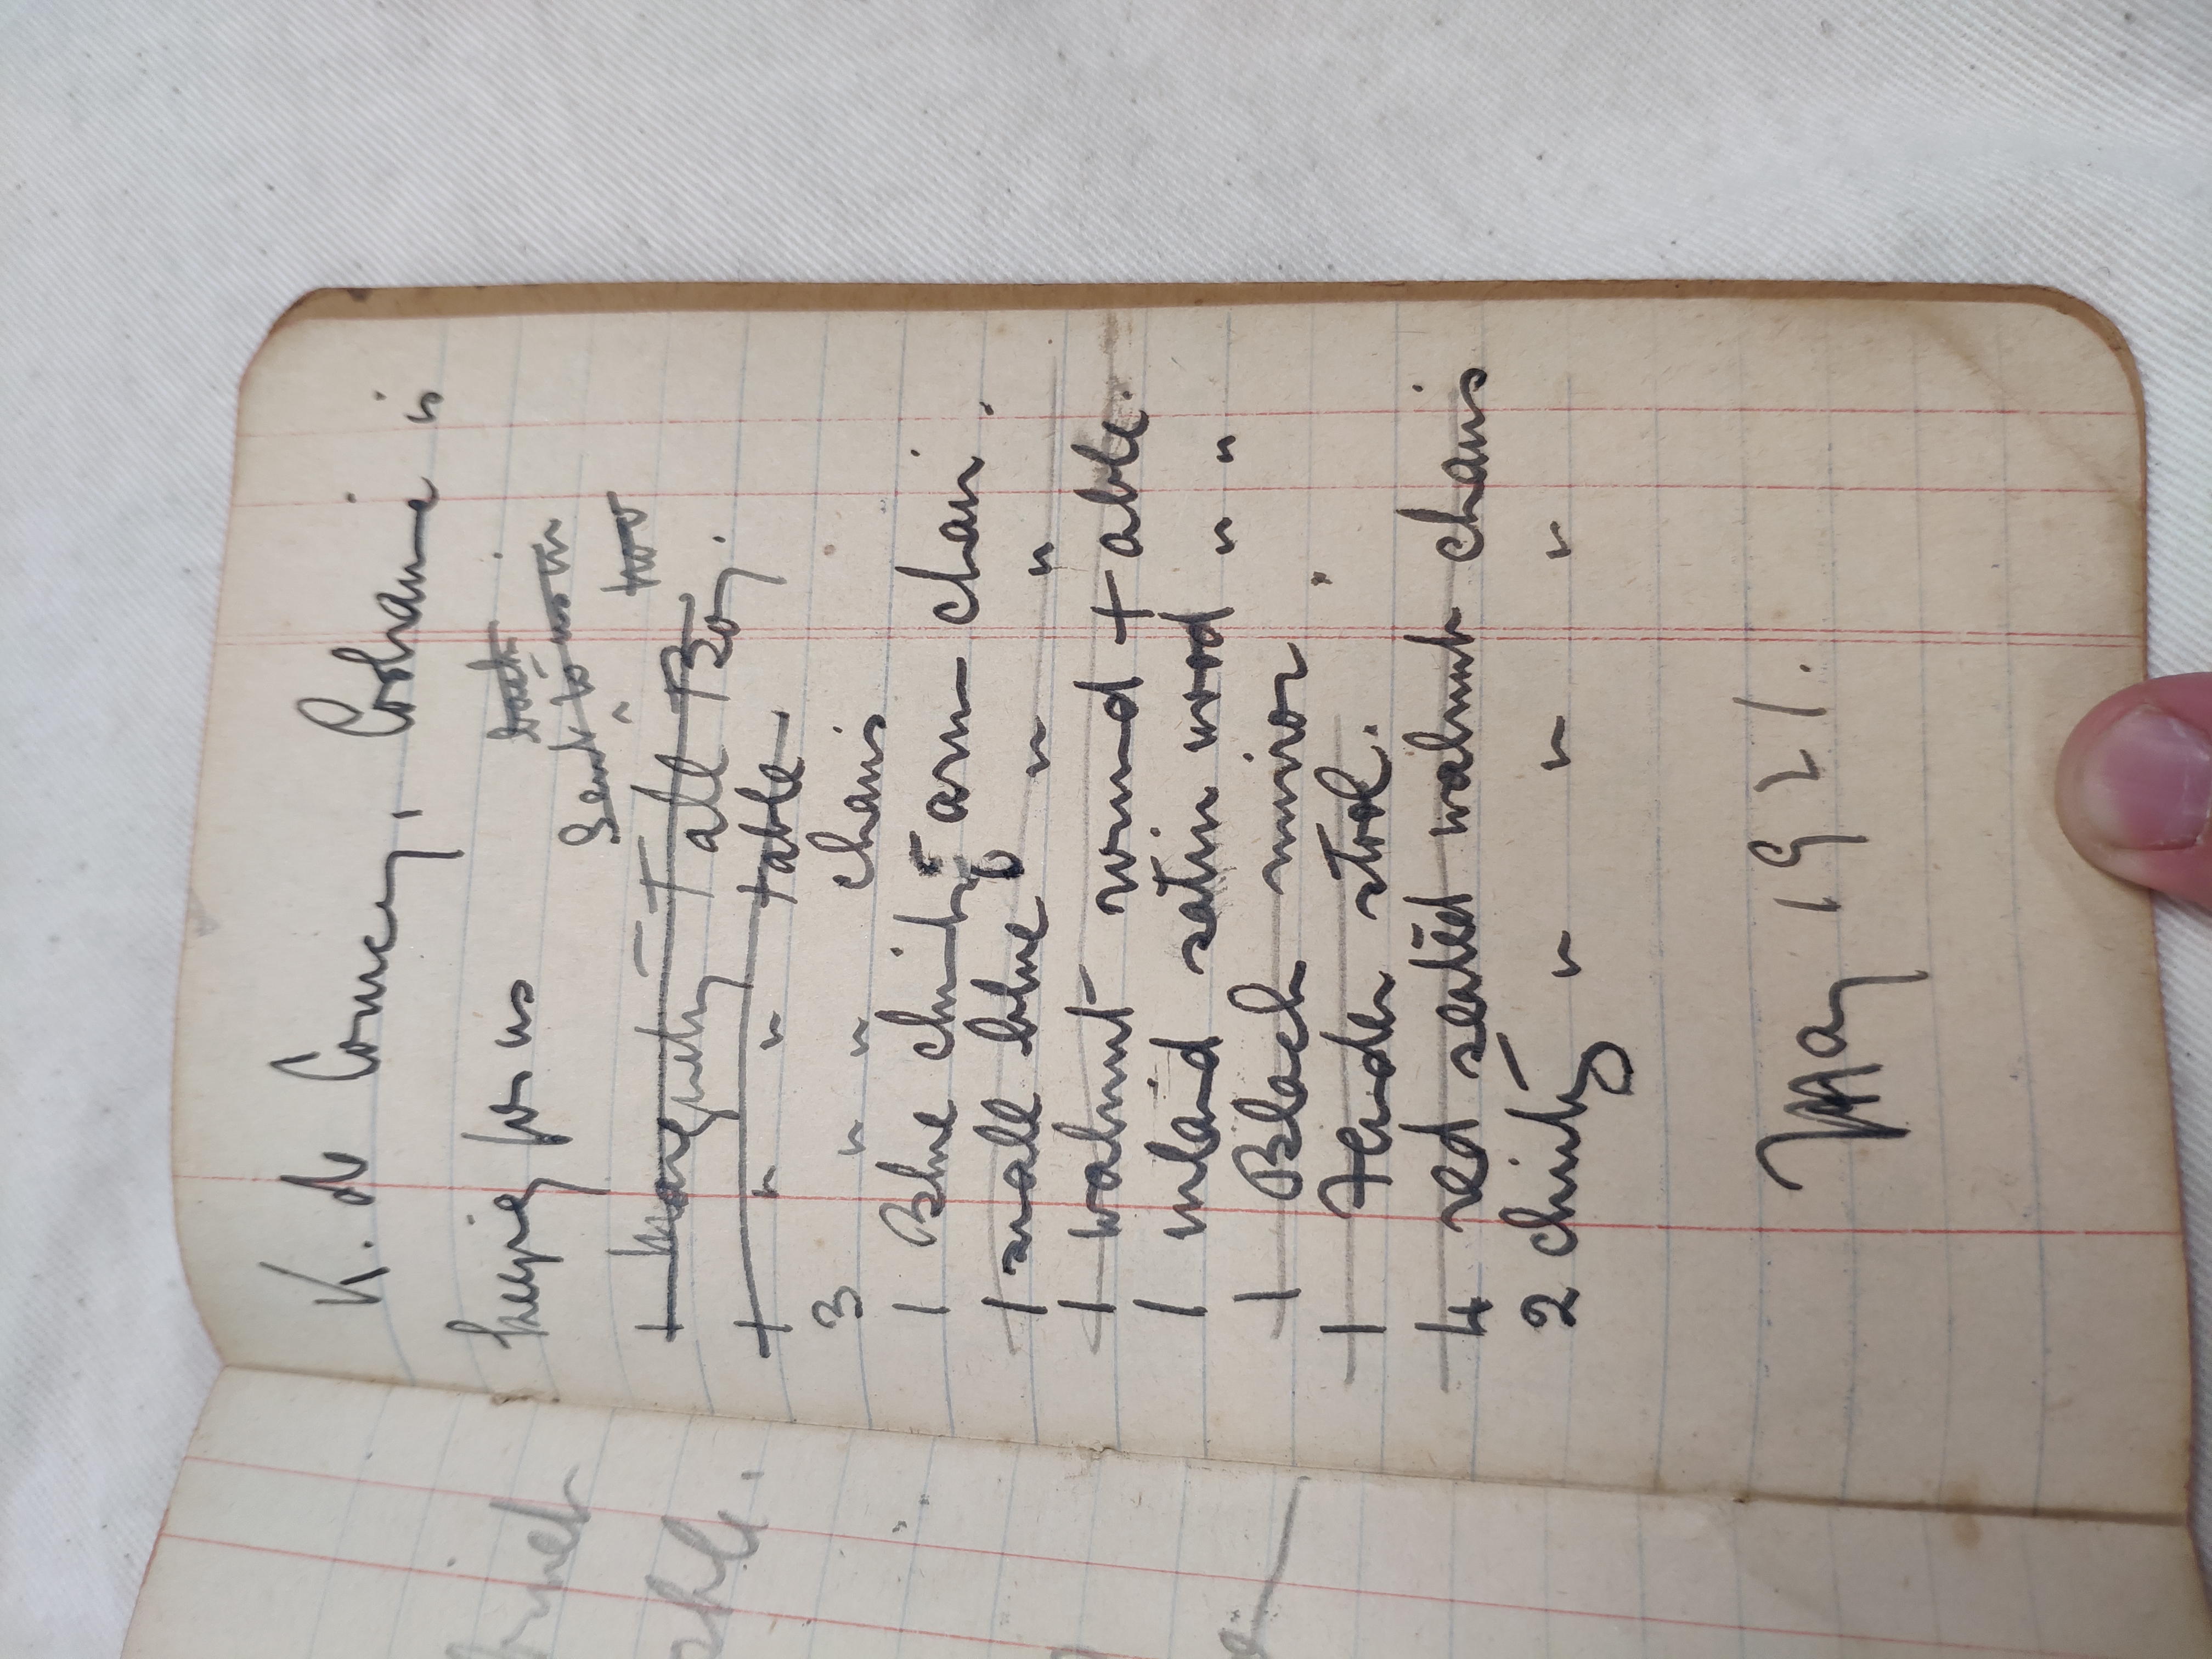 K. de Courcy, Cochrane is
keeping for us
both
Sent to us in
too
1 marquetry Tall Boy.
1 " " table
3 " " chairs
1 Blue chintz arm chair.
1 small blue " "
1 walnut round table.
1 inlaid satin wood " "
1 Black mirror.
1 Fender stool.
4 red seated walnut chairs
2 chintz " " "
May 1921.